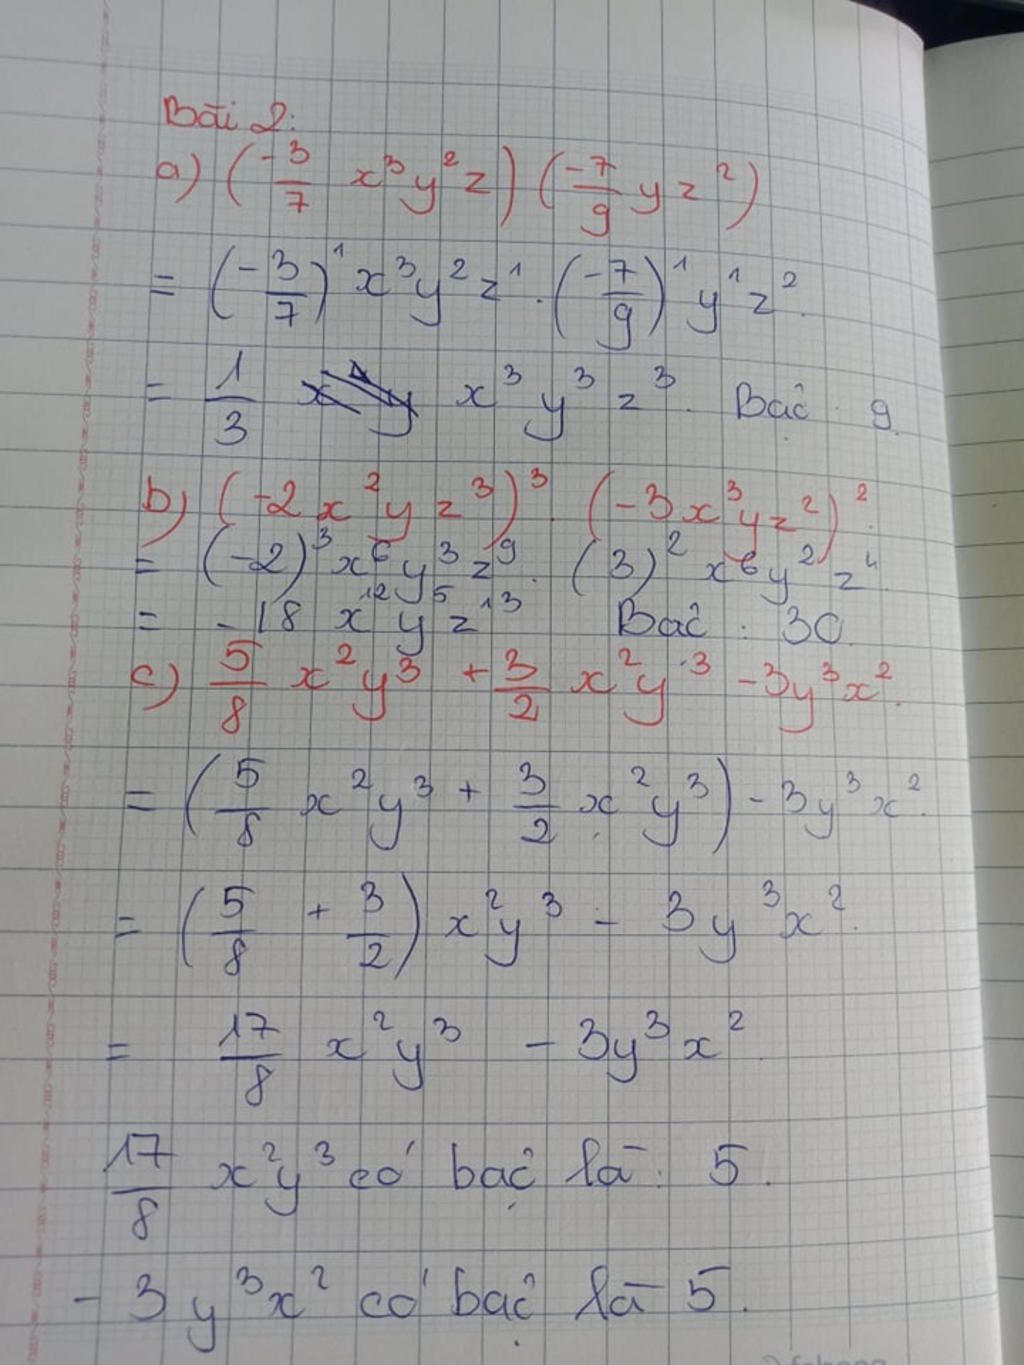 Bài 2:
a) (-3/7 x³y²z) (-7/9 yz²)
= (-3/7)¹ x³y²z¹ . (-7/9)¹ y¹z².
= 1/3 x³y³z³. Bậc : 9.
b) (-2x²yz³)³ . (-3x³yz²)².
= (-2)³x⁶y³z⁹ . (3)²x⁶y²z⁴.
= -18 x¹²y⁵z¹³ Bậc : 30
c) 5/8 x²y³ + 3/2 x²y³ - 3y³x².
= (5/8 x²y³ + 3/2 x²y³) - 3y³x².
= (5/8 + 3/2) x²y³ - 3y³x².
= 17/8 x²y³ - 3y³x².
17/8 x²y³ có bậc là : 5.
- 3y³x² có bậc là 5.